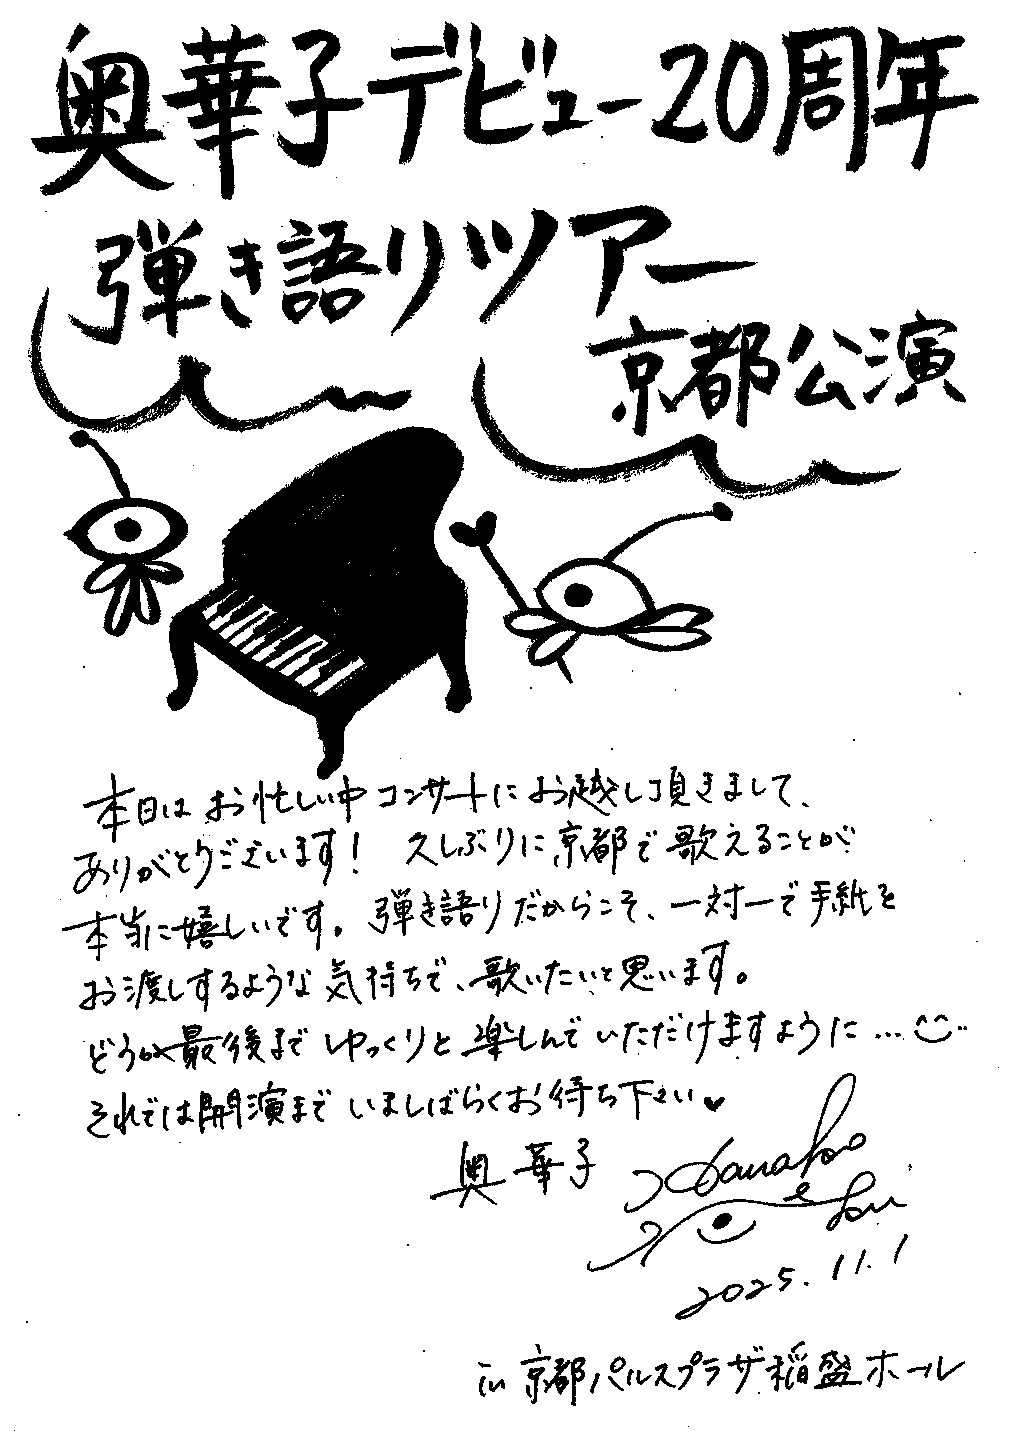 奥華子デビュー20周年
弾き語りツアー
京都公演
本日は お忙しい中 コンサートにお越し頂きまして、
ありがとうございます! 久しぶりに京都で歌えることが
本当に嬉しいです。弾き語りだからこそ、一対一で手紙を
お渡しするような気持ちで、歌いたいと思います。
どうか最後まで ゆっくりと楽しんでいただけますように…
それでは開演まで いましばらくお待ち下さい♥
奥華子
2025.11.1
in 京都パルスプラザ稲盛ホール